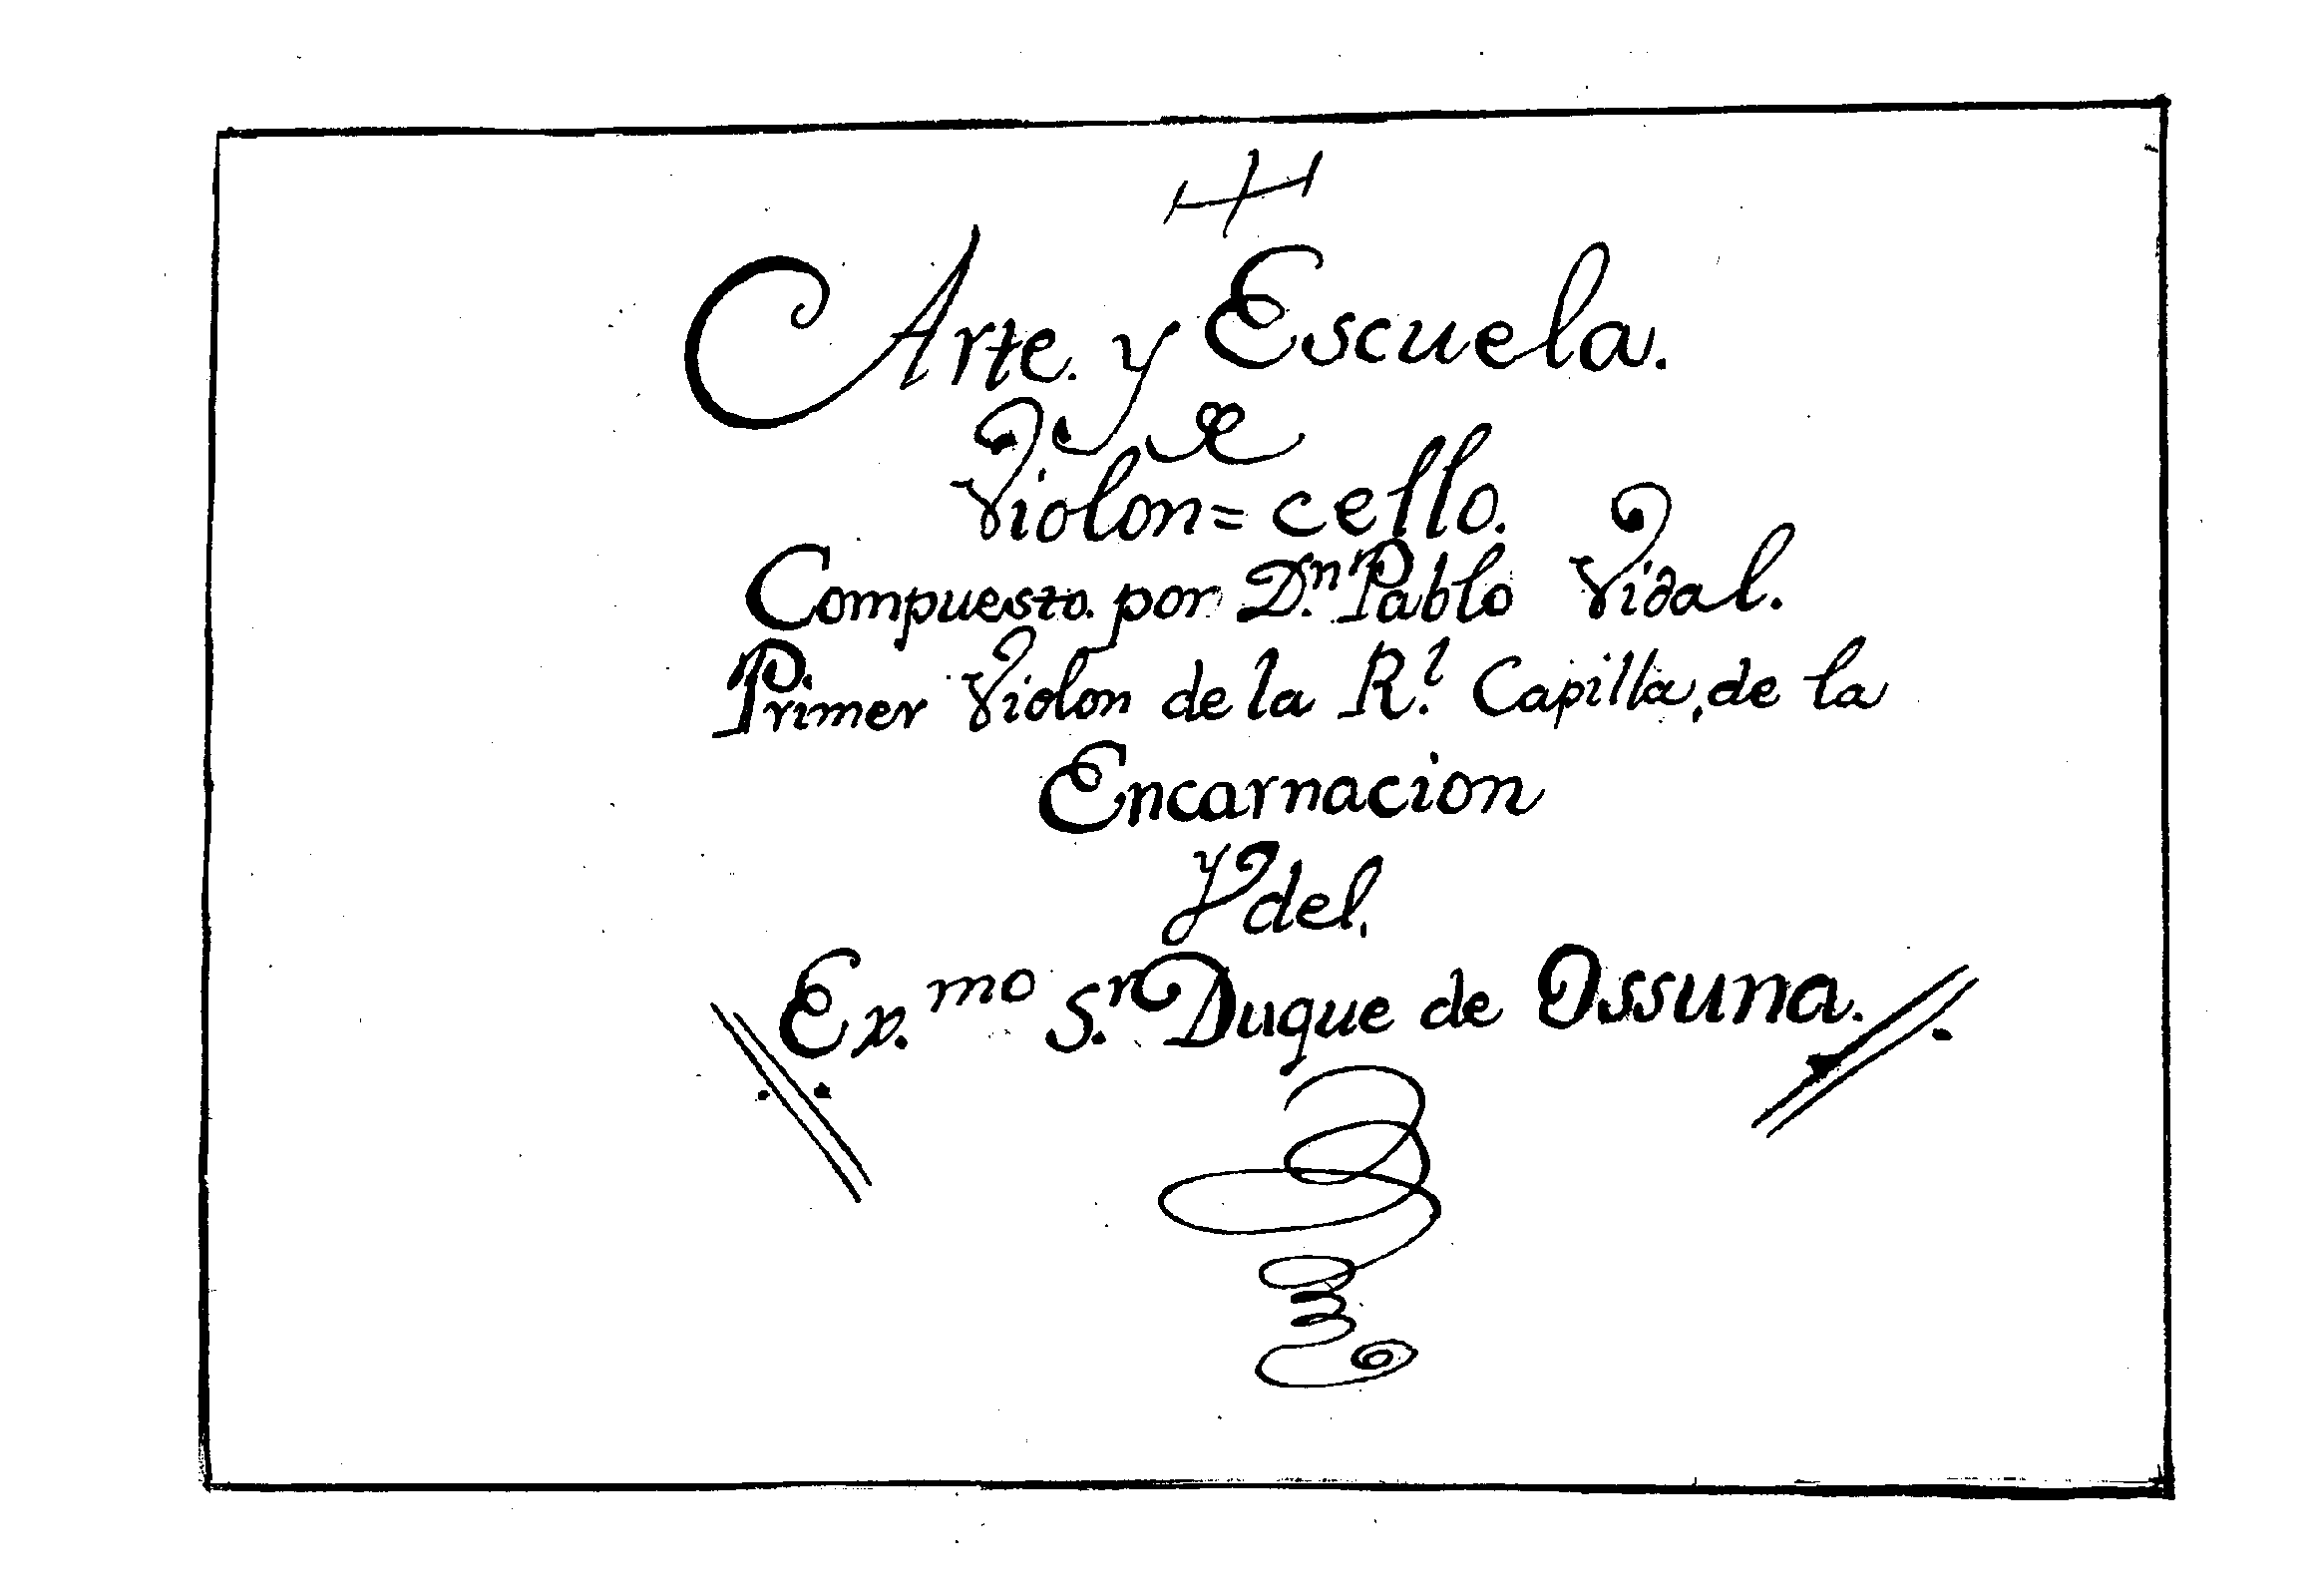 Arte. y Escuela.
de
Violon= cello.
Compuesto. por D.n Pablo Vidal.
Primer Violon de la R.l Capilla, de la
Encarnacion
y del.
Ex.mo S.r Duque de Ossuna.